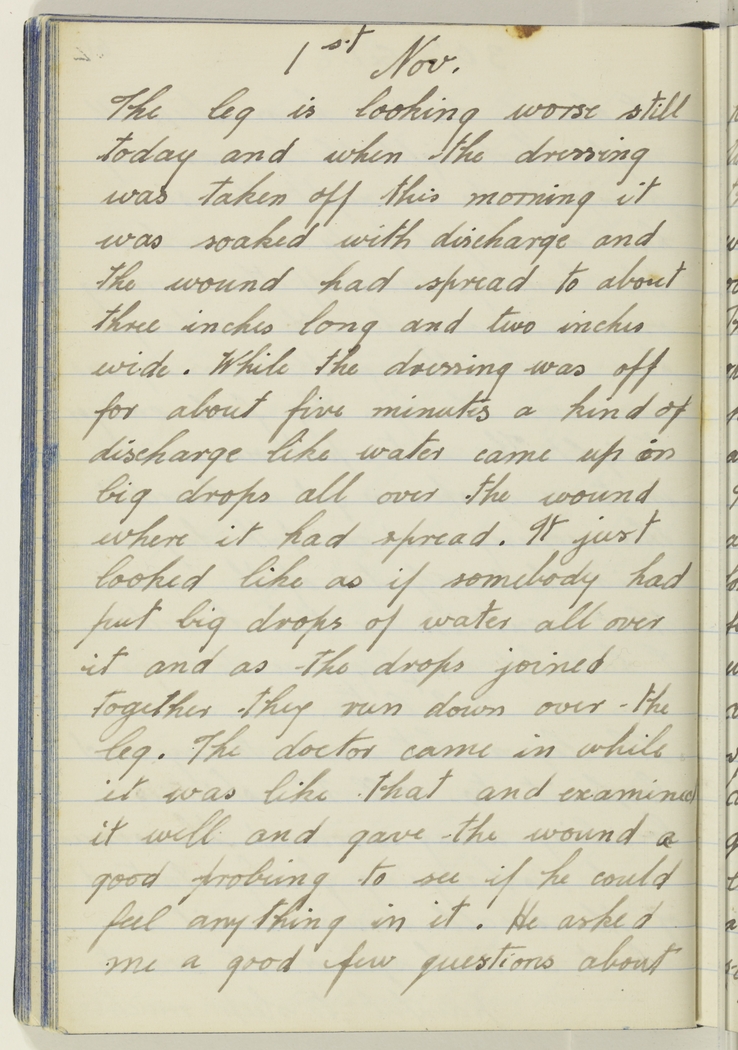 1st Nov.
The leg is looking worse still
today and when the dressing
was taken off this morning it
was soaked with discharge and
the wound had spread to about
three inches long and two inches
wide. While the dressing was off
for about five minutes a kind of
discharge like water came up in
big drops all over the wound
where it had spread. It just
looked like as if somebody had
put big drops of water all over
it and as the drops joined
together they run down over the
leg. The doctor came in while
it was like that and examined
it well and gave the wound a
good probing to see if he could
feel anything in it. He asked
me a good few questions about